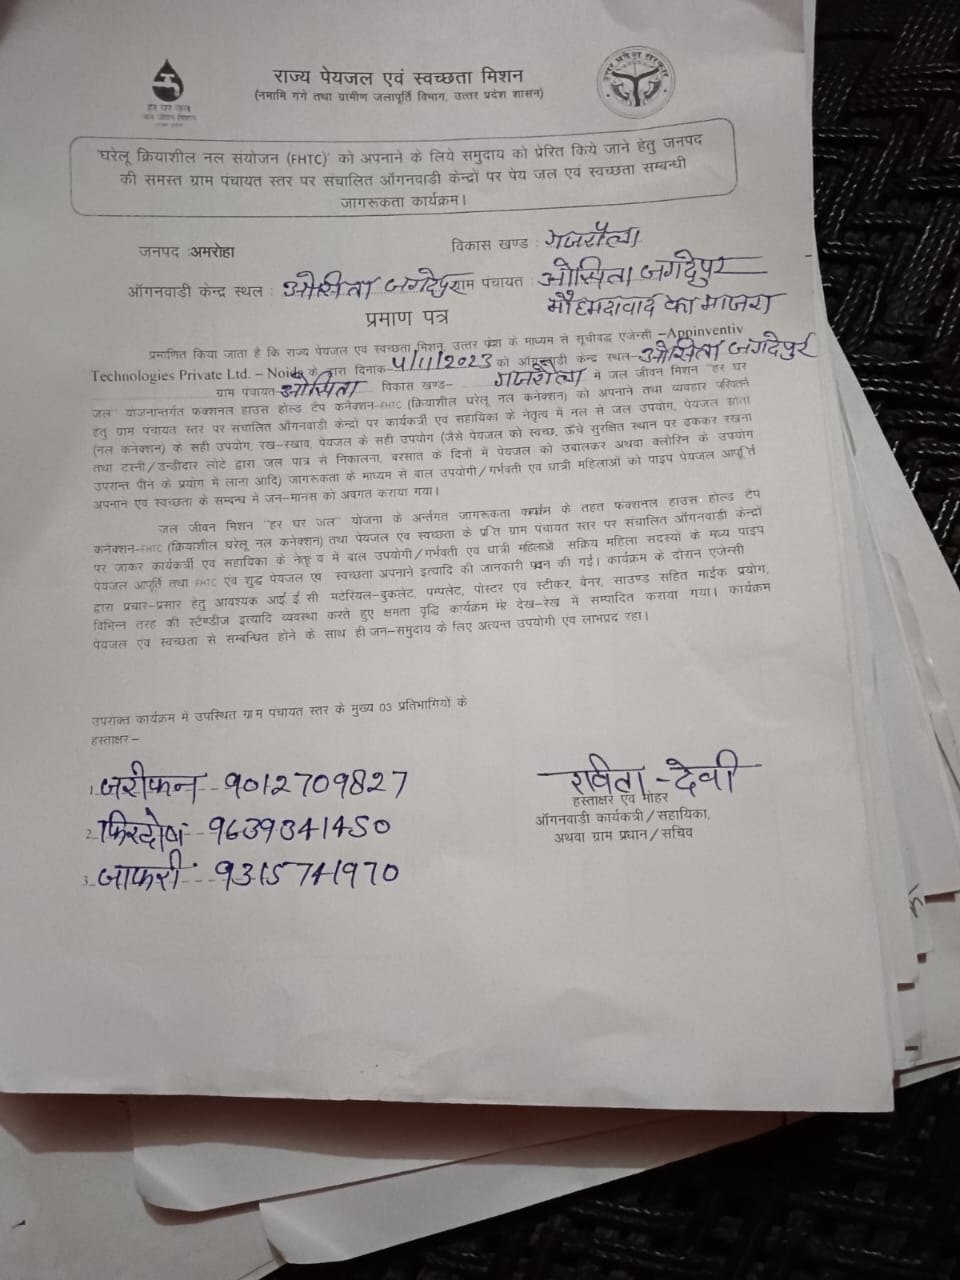 राज्य पेयजल एवं स्वच्छता मिशन
(नमामि गंगे तथा ग्रामीण जलापूर्ति विभाग, उत्तर प्रदेश शासन)
हर घर जल
जल जीवन मिशन
उत्तर प्रदेश सरकार
'घरेलू क्रियाशील नल संयोजन (FHTC)' को अपनाने के लिये समुदाय को प्रेरित किये जाने हेतु जनपद
की समस्त ग्राम पंचायत स्तर पर संचालित ऑगनवाडी केन्द्रों पर पेय जल एवं स्वच्छता सम्बन्धी
जागरूकता कार्यक्रम।
जनपद :अमरोहा विकास खण्ड : गजरौला
ऑगनवाडी केन्द्र स्थल : ओसिता जगदेपुर ग्राम पंचायत : ओसिता जगदेपुर
मौहमदावाद का माजरा
प्रमाण पत्र
प्रमाणित किया जाता है कि राज्य पेयजल एवं स्वच्छता मिशन, उत्तर प्रदेश के माध्यम से सूचीबद्ध एजेन्सी –Appinventiv
Technologies Private Ltd. – Noida के द्वारा दिनाक 4/11/2023 को ऑगनवाड़ी केन्द्र स्थल- ओसिता जगदेपुर
ग्राम पंचायत- ओसिता विकास खण्ड- गजरौला में जल जीवन मिशन "हर घर
जल" योजनान्तर्गत फक्शनल हाउस होल्ड टैप कनेक्शन-FHTC (क्रियाशील घरेलू नल कनेक्शन) को अपनाने तथा व्यवहार परिवर्तन
हेतु ग्राम पंचायत स्तर पर संचालित ऑगनवाडी केन्द्रों पर कार्यकर्त्री एवं सहायिका के नेतृत्व में नल से जल उपयोग, पेयजल स्रोतो
(नल कनेक्शन) के सही उपयोग, रख-रखाव, पेयजल के सही उपयोग (जैसे पेयजल को स्वच्छ, ऊँचे सुरक्षित स्थान पर ढककर रखना
तथा टस्नी/डन्डीदार लोटे द्वारा जल पात्र से निकालना, बरसात के दिनों में पेयजल को उबालकर अथवा क्लोरिन के उपयोग
उपरान्त पीने के प्रयोग में लाना आदि) जागरूकता के माध्यम से बाल उपयोगी/गर्भवती एवं धात्री महिलाओं को पाइप पेयजल आपूर्ति
अपनाने एवं स्वच्छता के सम्बन्ध में जन-मानस को अवगत कराया गया।
जल जीवन मिशन "हर घर जल" योजना के अर्न्तगत जागरूकता कार्यक्रम के तहत फंक्शनल हाउस होल्ड टैप
कनेक्शन-FHTC (क्रियाशील घरेलू नल कनेक्शन) तथा पेयजल एंव स्वच्छता के प्रति ग्राम पंचायत स्तर पर संचालित ऑगनवाडी केन्द्रों
पर जाकर कार्यकर्त्री एवं सहायिका के नेतृत्व में बाल उपयोगी/गर्भवती एवं धात्री महिलाओं सक्रिय महिला सदस्यों के मध्य पाइप
पेयजल आपूर्ति तथा FHTC एवं शुद्ध पेयजल एवं स्वच्छता अपनाने इत्यादि की जानकारी प्रदान की गई। कार्यक्रम के दौरान एजेन्सी
द्वारा प्रचार-प्रसार हेतु आवश्यक आई.ई.सी. मटेरियल-बुकलेट, पम्पलेट, पोस्टर एवं स्टीकर, बेनर, साउण्ड सहित माईक प्रयोग,
विभिन्न तरह की स्टैण्डीज इत्यादि व्यवस्था करते हुए क्षमता वृद्धि कार्यक्रम मेरे देख-रेख में सम्पादित कराया गया। कार्यक्रम
पेयजल एंव स्वच्छता से सम्बन्धित होने के साथ ही जन-समुदाय के लिए अत्यन्त उपयोगी एंव लाभप्रद रहा।
उपरोक्त कार्यक्रम में उपस्थित ग्राम पंचायत स्तर के मुख्य 03 प्रतिभागियों के
हस्ताक्षर –
1. जरीफन - 9012709827
2. फिरदोष - 9639341450
3. जाफरी - 9315741970
रविता - देवी
हस्ताक्षर एवं मोहर
ऑगनवाडी कार्यकत्री/सहायिका,
अथवा ग्राम प्रधान/सचिव